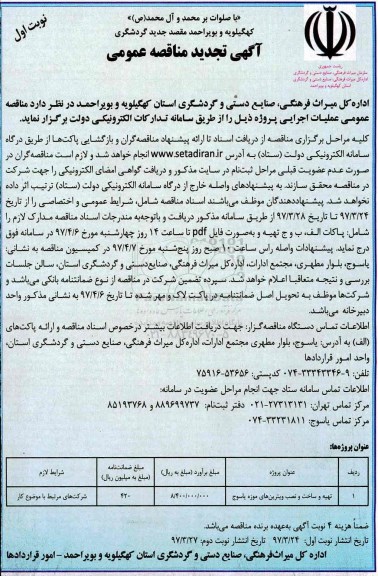 نوبت اول
«با صلوات بر محمد و آل محمد(ص)»
کهگیلویه و بویراحمد مقصد جدید گردشگری
آگهی تجدید مناقصه عمومی
اداره کل میراث فرهنگی، صنایع دستی و گردشگری استان کهگیلویه و بویراحمد در نظر دارد مناقصه
عمومی عملیات اجرایی پروژه ذیل را از طریق سامانه تدارکات الکترونیکی دولت برگزار نماید.
کلیه مراحل برگزاری مناقصه از دریافت اسناد تا ارائه پیشنهاد مناقصه‌گران و بازگشایی پاکت‌ها از طریق درگاه
سامانه الکترونیکی دولت (ستاد) به آدرس www.setadiran.ir انجام خواهد شد و لازم است مناقصه‌گران در
صورت عدم عضویت قبلی مراحل ثبت‌نام در سایت مذکور و دریافت گواهی امضای الکترونیکی را جهت شرکت
در مناقصه محقق سازند. به پیشنهادهای واصله خارج از درگاه سامانه الکترونیکی دولت (ستاد) ترتیب اثر داده
نخواهد شد. پیشنهاددهندگان موظف می‌باشند اسناد مناقصه شامل، شرایط عمومی و اختصاصی را از تاریخ
۹۷/۳/۲۴ تا تاریخ ۹۷/۳/۲۸ از طریق سامانه مذکور دریافت و باتوجه به مندرجات اسناد مناقصه مدارک لازم را
شامل: پاکات الف، ب و ج تهیه و به‌صورت فایل pdf تا ساعت ۱۴ روز چهارشنبه مورخ ۹۷/۴/۶ در سامانه فوق
درج نماید. پیشنهادات واصله راس ساعت ۱۰ صبح روز پنج‌شنبه مورخ ۹۷/۴/۷ در کمیسیون مناقصه به نشانی:
یاسوج، بلوار مطهری، مجتمع ادارات، اداره‌کل میراث فرهنگی، صنایع‌دستی و گردشگری استان، سالن جلسات
بررسی و نتیجه متعاقبا اعلام خواهد شد. سپرده تضمین شرکت در مناقصه از نوع ضمانتنامه بانکی می‌باشد و
شرکت‌ها موظف به تحویل اصل ضمانتنامه در پاکت لاک و مهر شده تا تاریخ ۹۷/۴/۶ به نشانی مذکور واحد
دبیرخانه می‌باشد.
اطلاعات تماس دستگاه مناقصه‌گزار: جهت دریافت اطلاعات بیشتر درخصوص اسناد مناقصه و ارائه پاکت‌های
(الف) به آدرس: یاسوج، بلوار مطهری مجتمع ادارات، اداره‌کل میراث فرهنگی، صنایع دستی و گردشگری استان،
واحد امور قراردادها
تلفن: ۹-۳۳۳۴۳۳۴۶-۰۷۴ کدپستی: ۵۳۶۵۶-۷۵۹۱۶
اطلاعات تماس سامانه ستاد جهت انجام مراحل عضویت در سامانه:
مرکز تماس تهران: ۲۷۳۱۳۱۳۱-۰۲۱ دفتر ثبت‌نام: ۸۸۹۶۹۷۳۷ و ۸۵۱۹۳۷۶۸
مرکز تماس یاسوج: ۳۳۲۳۱۸۱۱-۰۷۴
عنوان پروژه‌ها:
ردیف عنوان پروژه مبلغ برآورد (مبلغ به ریال) مبلغ ضمانت‌نامه (مبلغ به میلیون ریال) شرایط لازم
۱ تهیه و ساخت و نصب ویترین‌های موزه یاسوج ۸/۴۰۰/۰۰۰/۰۰۰ ۴۲۰ شرکت‌های مرتبط با موضوع کار
ضمناً هزینه ۴ نوبت آگهی به‌عهده برنده مناقصه می‌باشد.
تاریخ انتشار نوبت اول: ۹۷/۳/۲۴ تاریخ انتشار نوبت دوم: ۹۷/۳/۲۷
اداره کل میراث‌فرهنگی، صنایع دستی و گردشگری استان کهگیلویه و بویراحمد - امور قراردادها